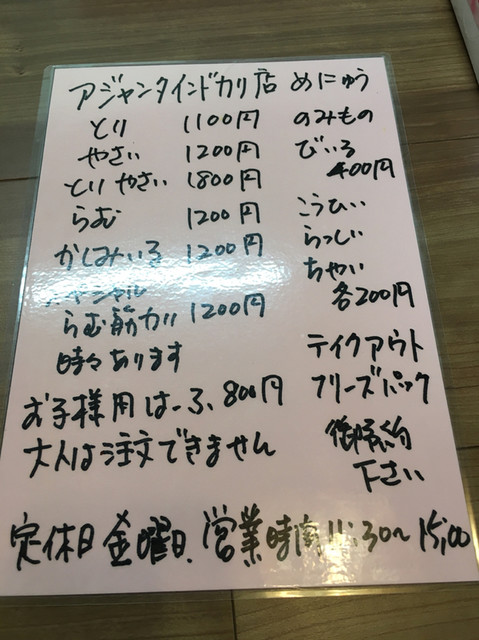 アジャンタインドカリ店 めにゅう
とり 1100円
やさい 1200円
とりやさい 1800円
らむ 1200円
かしみいる 1200円
らむ筋カリ 1200円
時々あります
お子様用はーふ、800円
大人は注文できません
のみもの
びいる
400円
こうひい
らっしい
ちゃい
各200円
テイクアウト
フリーズパック
下さい
定休日 金曜日、営業時間 11:30～15:00